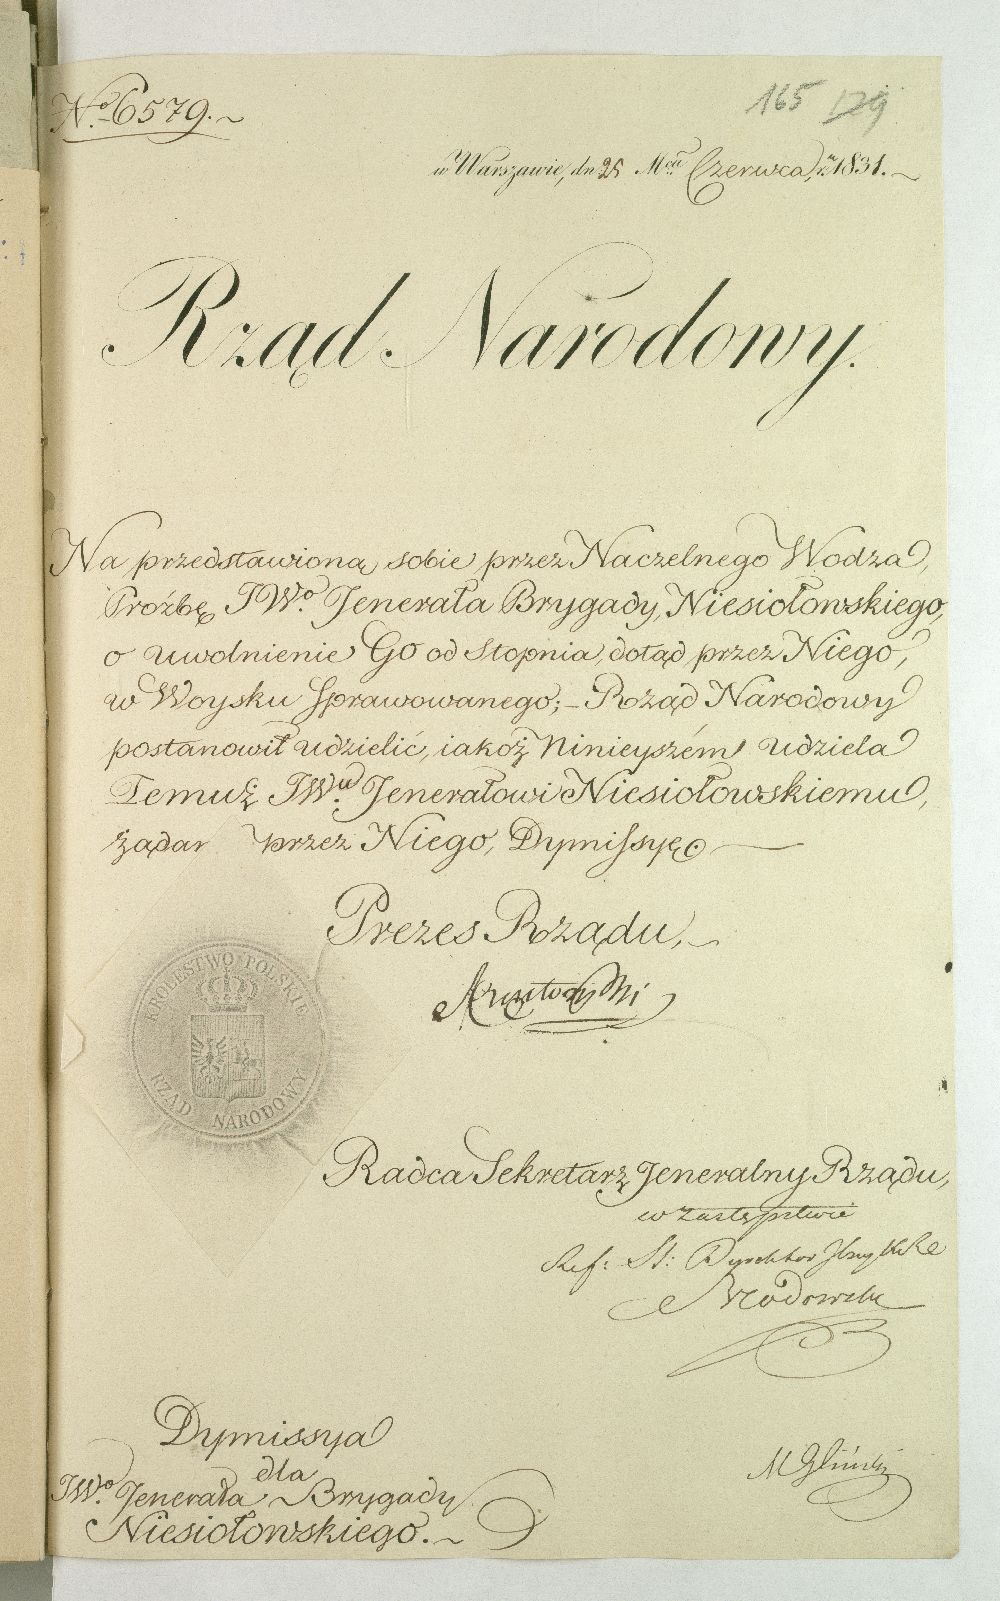 No 6579.
165 129
w Warszawie, dn 25 Mca Czerwca, r. 1831.
Rząd Narodowy.
Na przedstawioną sobie przez Naczelnego Wodza,
Prożbę JWo. Jenerała Brygady, Niesiołowskiego,
o uwolnienie Go od Stopnia, dotąd przez Niego,
w Woysku sprawowanego; – Rząd Narodowy
postanowił udzielić, iakoż Ninieyszém udziela
Temuż JWu. Jenerałowi Niesiołowskiemu,
żądan przez Niego, Dymissyę
Prezes Rządu,
KRÓLESTWO POLSKIE
RZĄD NARODOWY
Radca Sekretarz Jeneralny Rządu,
w zastępstwie
Ref: St: Dyrektor
M Gliński
Dymissya
dla
JWo. Jenerała Brygady
Niesiołowskiego.